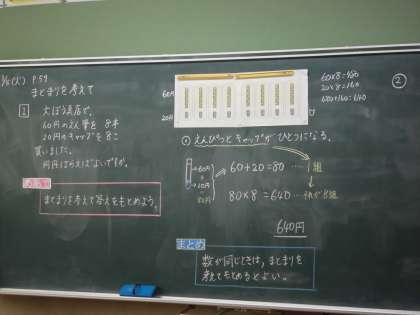 (火) P.59
まとまりを考えて
2
文ぼう具店で、
60円のえん筆を 8本
20円のキャップを 8こ
買いました。
何円はらえばよいですか。
まとまりを考えて答えをもとめよう。
60円
20円
60×8=480
20×8=160
480+160=640
②
えんぴつと キャップが ひとつになる。
60円
+
20円
60+20=80 … 1組
80×8=640 … それが8組
640円
まとめ
数が同じときは、まとまりを
考えてもとめるとよい。